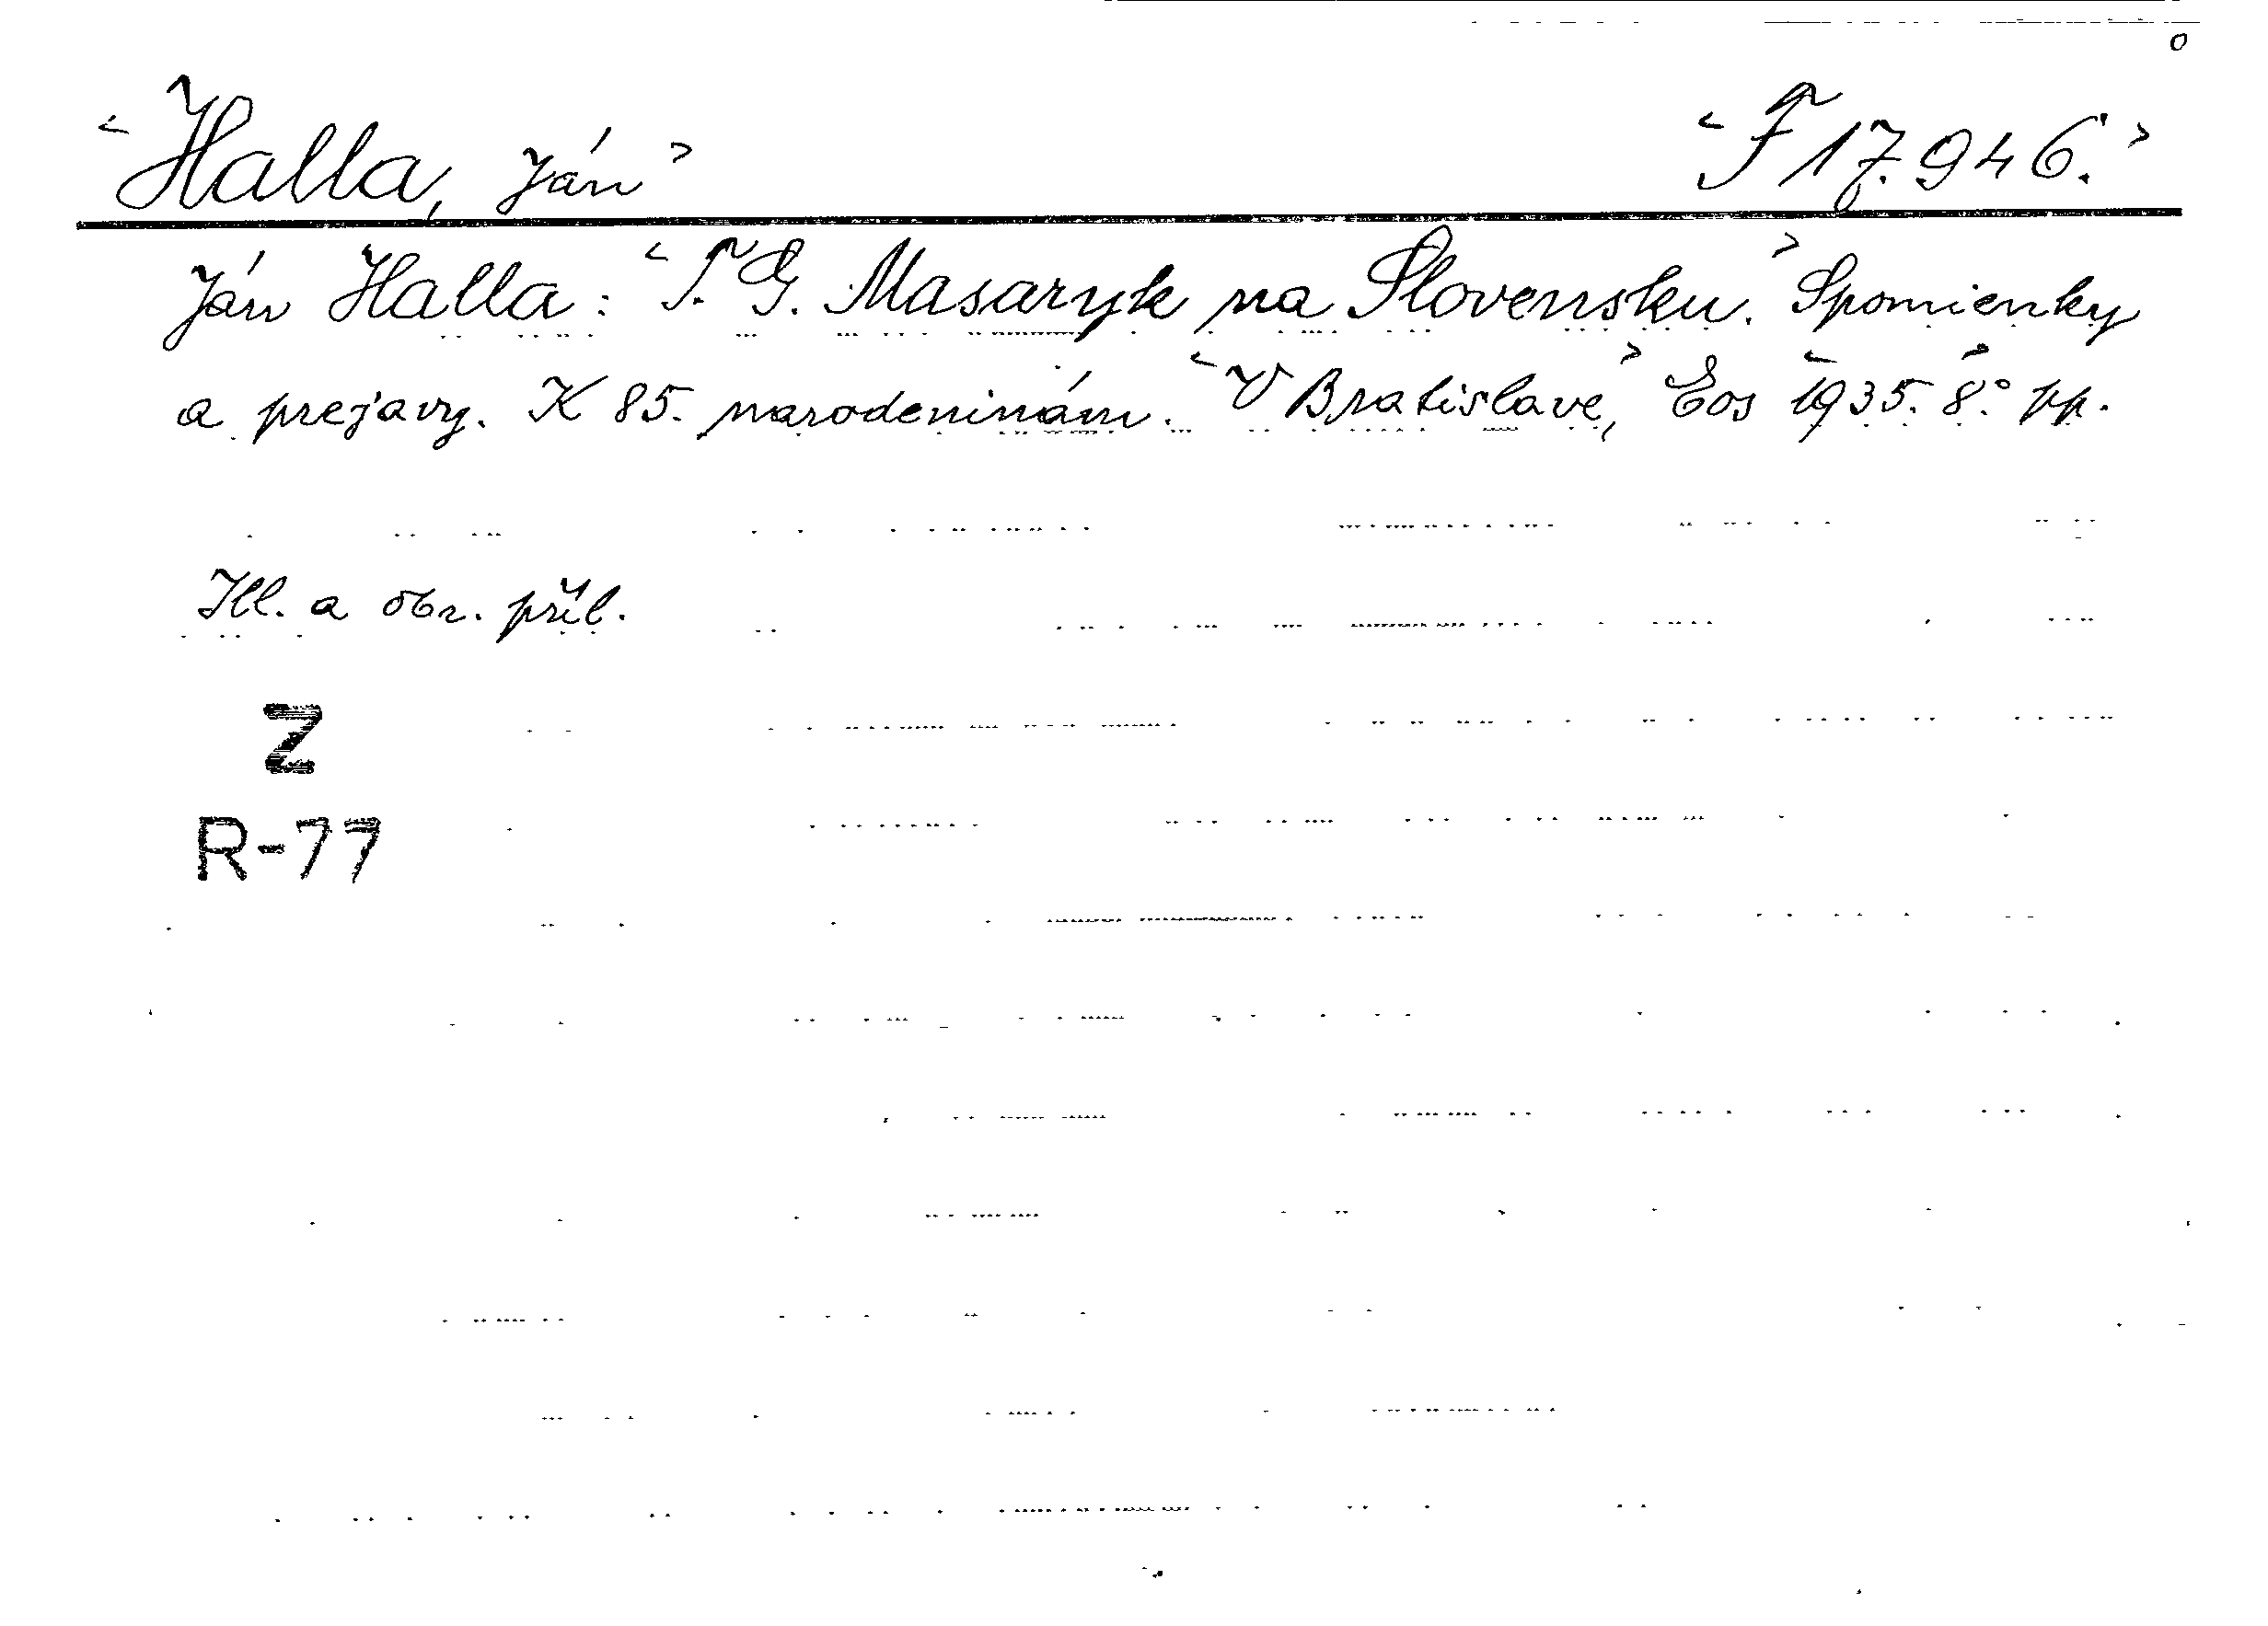 <Halla, Ján> <F 17.946.>
Ján Halla: <T. G. Masaryk na Slovensku.> Spomienky
a prejavy. K 85. narodeninám. <V Bratislave,> Eos <1935.> 8° pp.
Ill. a obr. příl.
Z
R-77